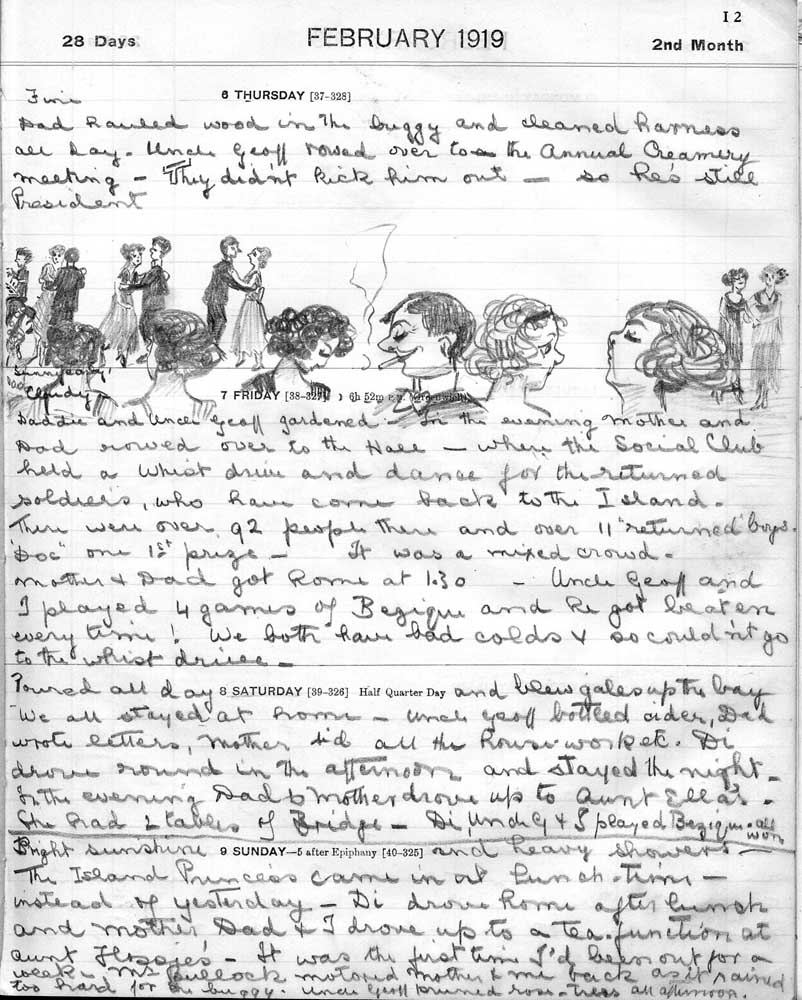 12
28 Days FEBRUARY 1919 2nd Month
6 THURSDAY [37-328]
Fine
Dad hauled wood in the buggy and cleaned harness
all day. Uncle Geoff rowed over to the Annual Creamery
meeting — They didn't kick him out — so he's still
President
Sunny early
Cloudy
7 FRIDAY [38-327] 6h 52m P.M. (Greenwich)
Daddie and Uncle Geoff gardened — In the evening Mother and
Dad rowed over to the Hall — where the Social Club
held a whist drive and dance for the returned
soldiers, who have come back to the Island.
There were over 92 people there and over 11 "returned" boys.
"Doc" one 1st prize — It was a mixed crowd.
Mother & Dad got home at 1.30 — Uncle Geoff and
I played 4 games of Bezique and he got beaten
every time! We both have bad colds & so couldn't go
to the whist drive —
Poured all day 8 SATURDAY [39-326] Half Quarter Day and blew gales up the bay
We all stayed at home — Uncle Geoff bottled cider, Dad
wrote letters, Mother did all the house-work etc. Di
drove round in the afternoon and stayed the night —
In the evening Dad & Mother drove up to Aunt Ella's.
She had 2 tables of Bridge — Di, Uncle G & I played Bezique. all won
Bright sunshine 9 SUNDAY—5 after Epiphany [40-325] and heavy showers
The Island Princess came in at lunch-time —
instead of yesterday — Di drove home after lunch
and Mother Dad & I drove up to a tea function at
Aunt Flossie's — It was the first time I'd been out for a
week — Mr Bullock motored Mother & me back as it rained
too hard for the buggy. Uncle Geoff pruned rose-trees all afternoon.